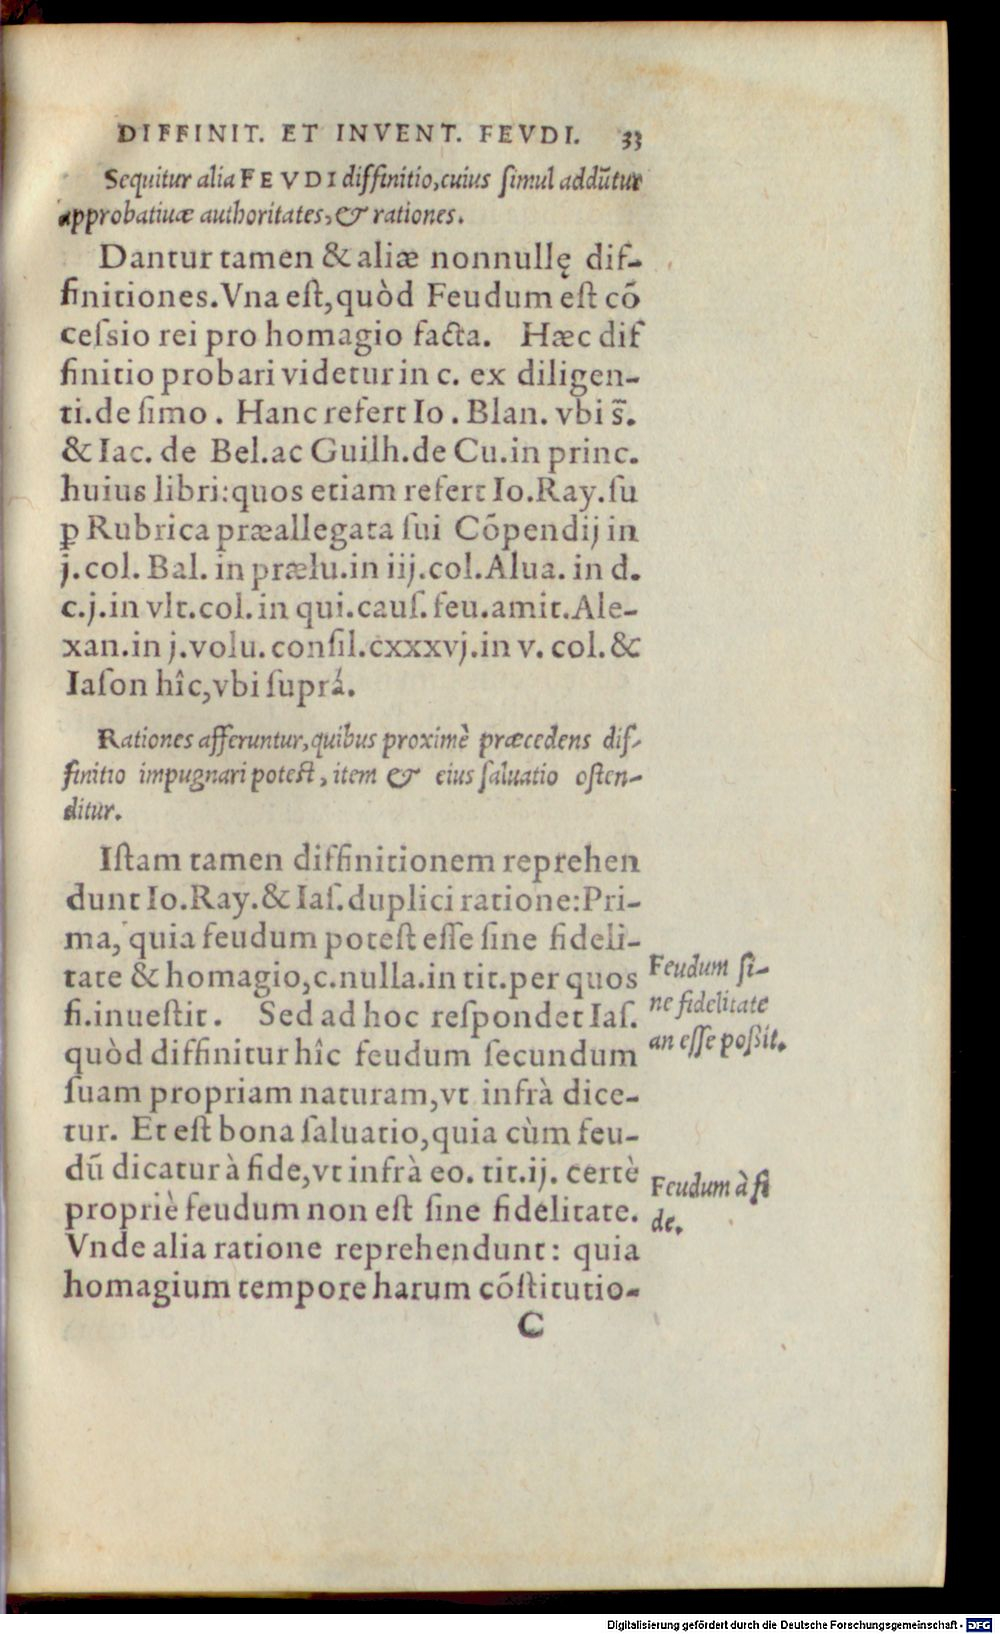 DIFFINIT. ET INVENT. FEVDI. 33
Sequitur alia FEVDI diffinitio, cuius ſimul addūtur
approbatiuæ authoritates, & rationes.
Dantur tamen & aliæ nonnullę dif-
finitiones. Vna eſt, quòd Feudum eſt cō
ceſsio rei pro homagio facta. Hæc dif
finitio probari videtur in c. ex diligen-
ti. de ſimo. Hanc refert Io. Blan. vbi s̄.
& Iac. de Bel. ac Guilh. de Cu. in princ.
huius libri: quos etiam refert Io. Ray. ſu
ꝑ Rubrica præallegata ſui Cōpendij in
j. col. Bal. in prælu. in iij. col. Alua. in d.
c. j. in vlt. col. in qui. cauſ. feu. amit. Ale-
xan. in j. volu. conſil. cxxxvj. in v. col. &
Iaſon hîc, vbi suprá.
Rationes afferuntur, quibus proximè præcedens dif-
finitio impugnari poteſt, item & eius ſaluatio oſten-
ditur.
Iſtam tamen diffinitionem reprehen
dunt Io. Ray. & Iaſ. duplici ratione: Pri-
ma, quia feudum poteſt eſſe ſine fideli-
tate & homagio, c. nulla. in tit. per quos
fi. inueſtit. Sed ad hoc reſpondet Iaſ.
quòd diffinitur hîc feudum ſecundum
ſuam propriam naturam, vt infrà dice-
tur. Et eſt bona ſaluatio, quia cùm feu-
dū dicatur à fide, vt infrà eo. tit. ij. certè
propriè feudum non eſt ſine fidelitate.
Vnde alia ratione reprehendunt: quia
homagium tempore harum cōſtitutio-
C
Feudum ſi-
ne fidelitate
an eſſe poßit.
Feudum à fi
de.
Digitalisierung gefördert durch die Deutsche Forschungsgemeinschaft - DFG